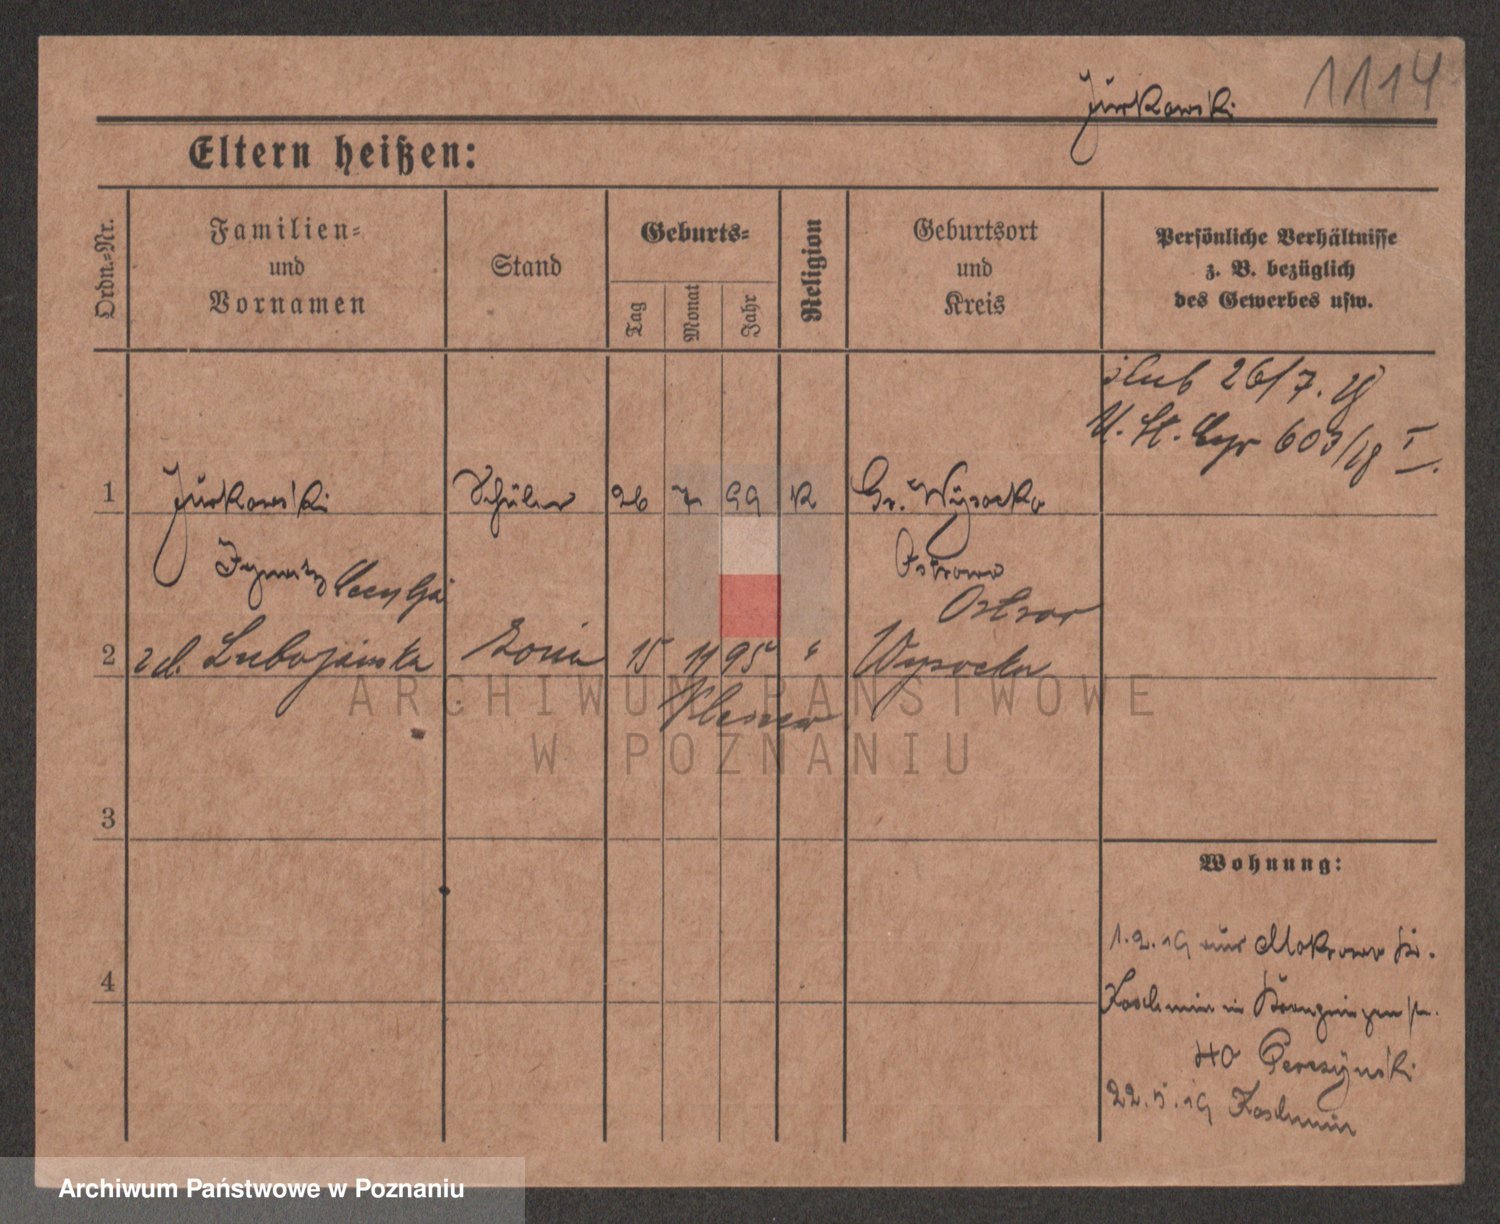 1114
Jurkowski
Eltern heißen:
Ordn.-Nr.
Familien-
und
Vornamen
Stand
Geburts-
Tag
Monat
Jahr
Religion
Geburtsort
und
Kreis
Persönliche Verhältnisse
z. B. bezüglich
des Gewerbes usw.
ślub 26/7.
U. St. 603/18 I.
1 Jurkowski Schüler 26 7 99 K Gr. Wysocko
Ostrowo
Ostrow
2 zd. Lubojanska Zonia 15 11 95 " Wysocka
ARCHIWUM PAŃSTWOWE
W POZNANIU
3
4
Wohnung:
1.2.19 aus Mokronos Kr.
Koschmin in Kronprinzenstr.
40
22.5.19 Koschmin
Archiwum Państwowe w Poznaniu